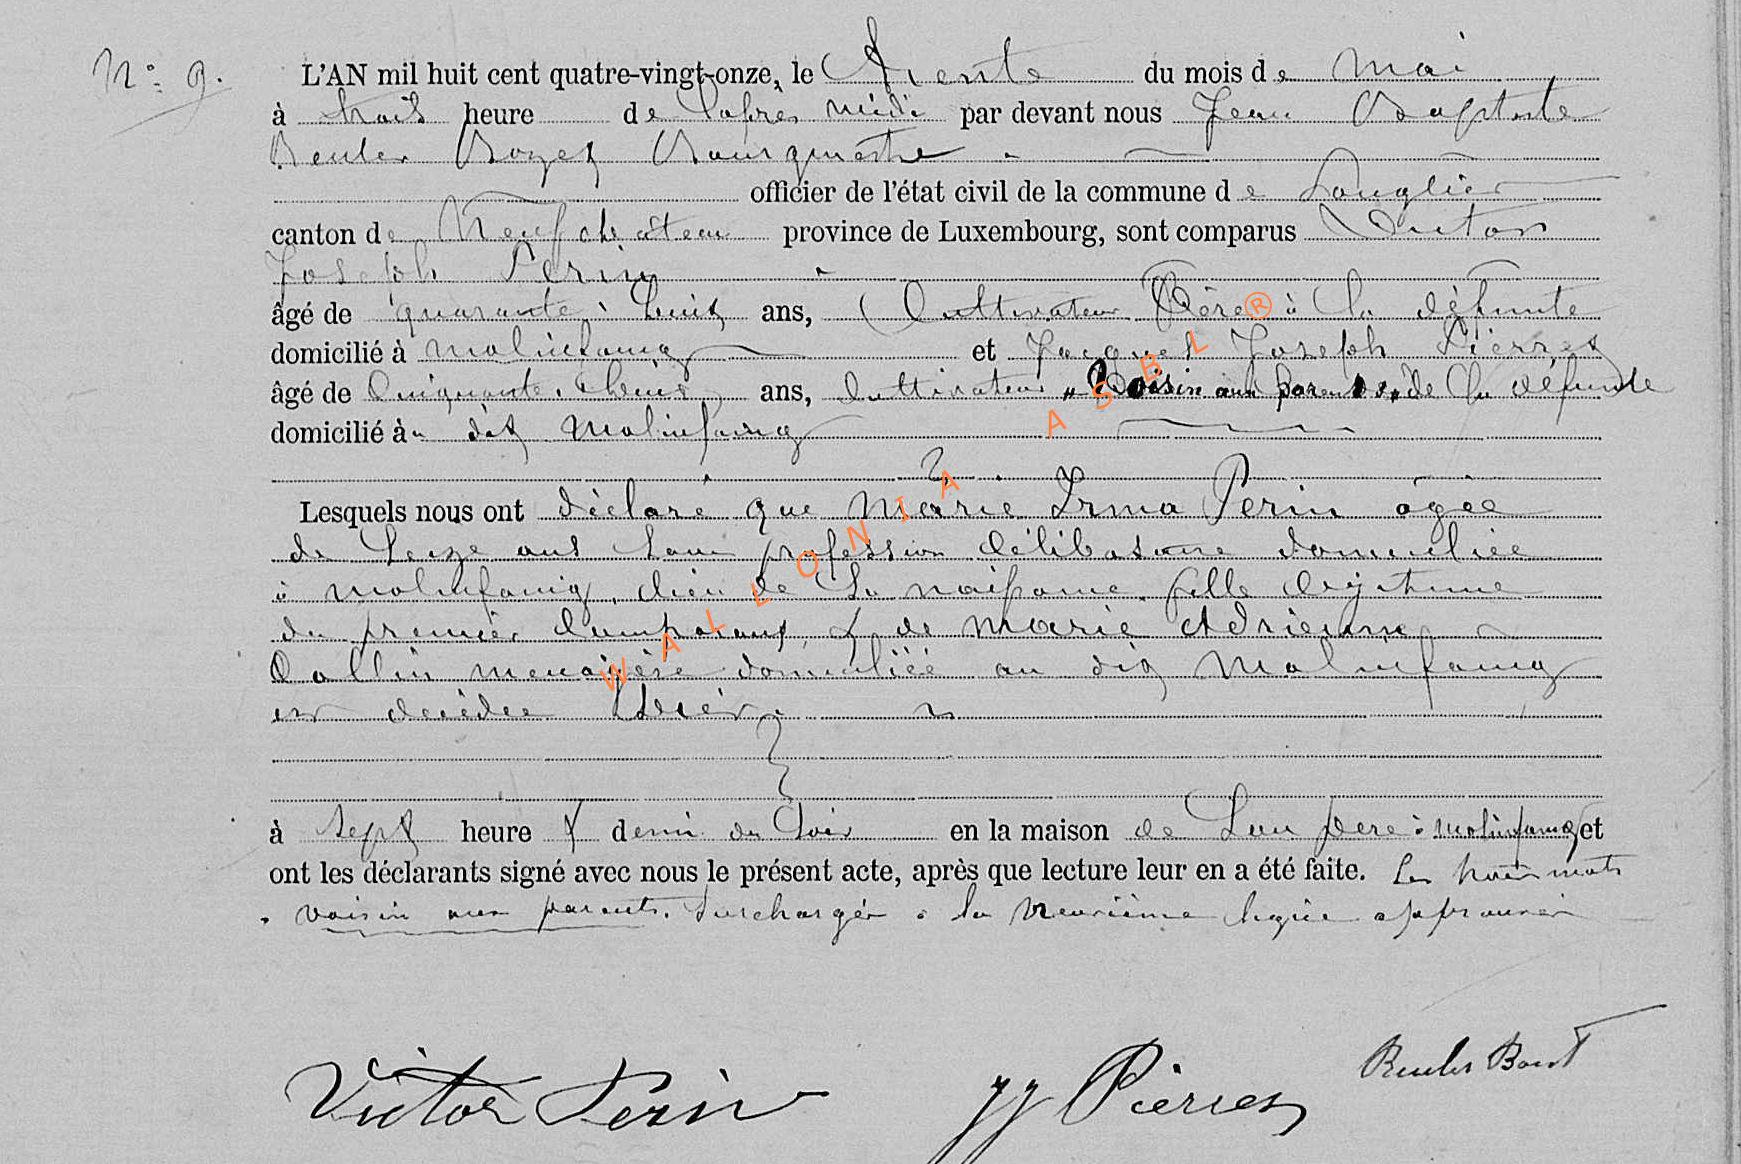 N° 9. L'AN mil huit cent quatre-vingt-onze, le Trente du mois de mai
à trois heure de l'apres midi par devant nous Jean Baptiste
Reuler Bozet Bourgmestre
officier de l'état civil de la commune de Longlier
canton de Neufchâteau province de Luxembourg, sont comparus Victor
Joseph Perin
âgé de quarante huit ans, Cultivateur Père à la défunte
domicilié à molinfaing et Jacques Joseph Pierret
âgé de Cinquante ans, Cultivateur „ Voisin aux parents „ de la défunte
domicilié à dit Molinfaing
Lesquels nous ont déclaré que Marie Irma Perin âgée
de seize ans sans profession célibataire domiciliée
à molinfaing, lieu de sa naissance, fille légitime
du premier comparant, & de Marie Adrienne
Collin menagère domiciliée au dit Molinfaing
est décédée hier
à sept heure & demi du soir en la maison de son père à molinfaing et
ont les déclarants signé avec nous le présent acte, après que lecture leur en a été faite. Les trois mots
voisin aux parents. surchargés à la neuvième ligne approuvés
Victor Perin JJ Pierret Reuler Bozet
WALLONIA ASBL ®